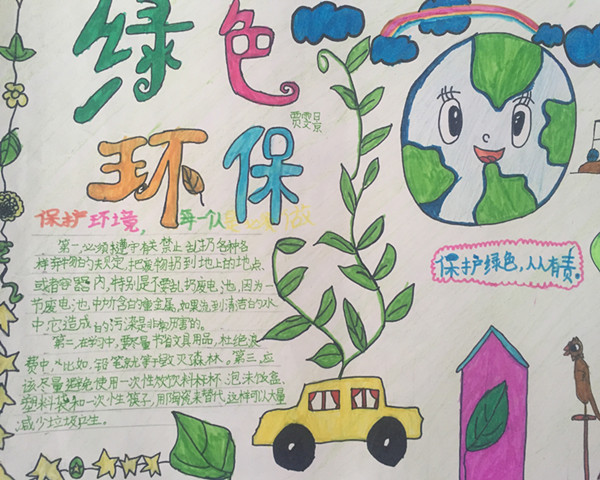 绿色
环保
贾雯景
保护环境,
第一,必须遵守有关禁止乱扔各种各
样弃物的规定,把废物扔到地上的地点
或者容器内,特别是不要乱扔废电池,因为一
节废电池中为含的重金属,如果流到清洁的水
中,它造成的污染是非常厉害的。
第二,在学习中,要尽量节省文具用品,杜绝浪
费中,"比如,铅笔就等于毁灭森林。第三,应
该尽量避免使用一次性饮料杯、泡沫饭盒、
塑料袋和一次性筷子,用陶瓷来替代,这样可以大量
减少垃圾产生。
保护绿色,人人有责.